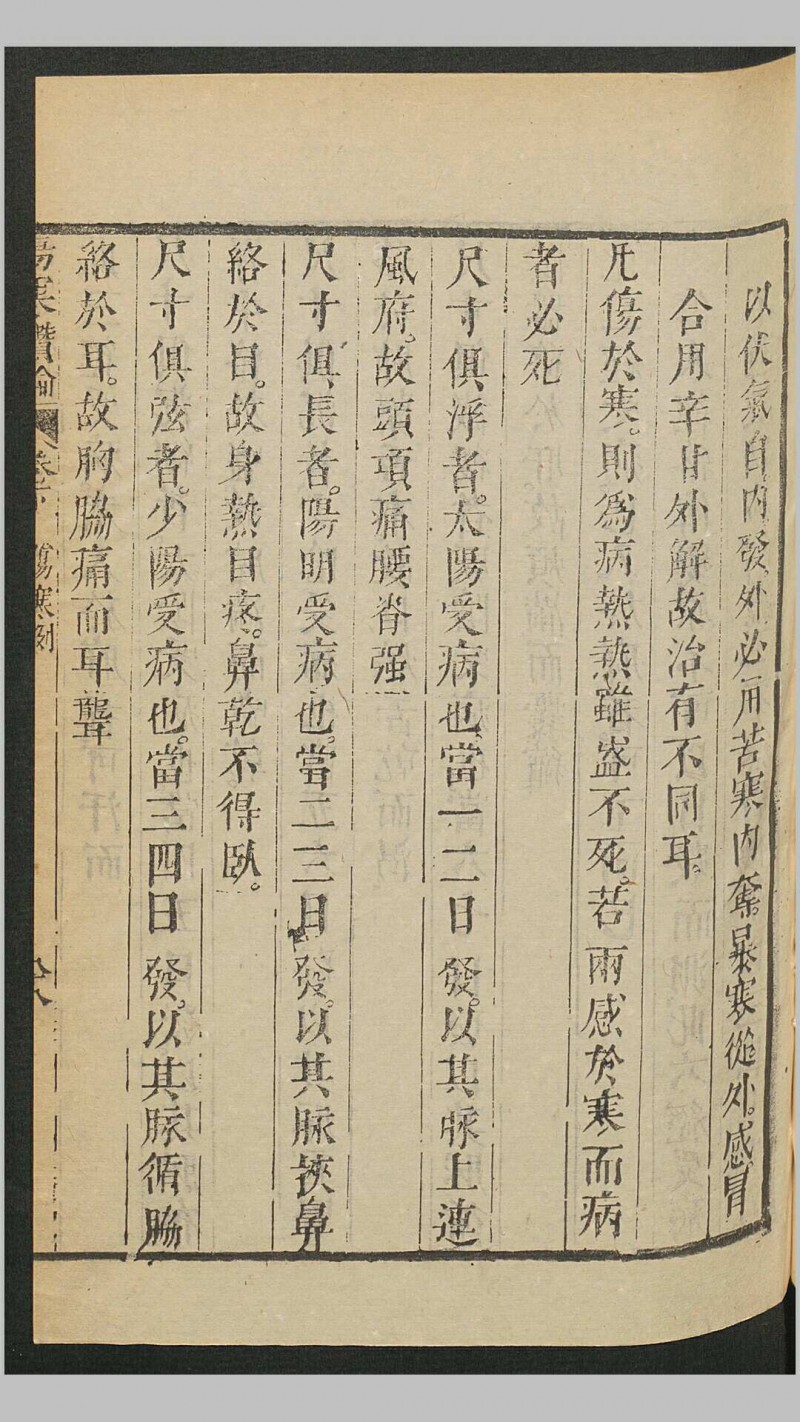 以伏氣自內發外必用苦寒內奪暴寒從外感冒
合用辛甘外解故治有不同耳
凡傷於寒。則爲病熱熱雖盛不死。若兩感於寒而病
者必死
尺寸俱浮者。太陽受病也當一二日發。以其脈上連
風府。故頭項痛腰脊强
尺寸俱長者。陽明受病也。當二三日發。以其脈挾鼻
絡於目。故身熱目疼。鼻乾不得臥。
尺寸俱弦者。少陽受病也。當三四日發。以其脈循脇
絡於耳。故胸脇痛而耳聾
傷寒纘論 卷下 傷寒例 八